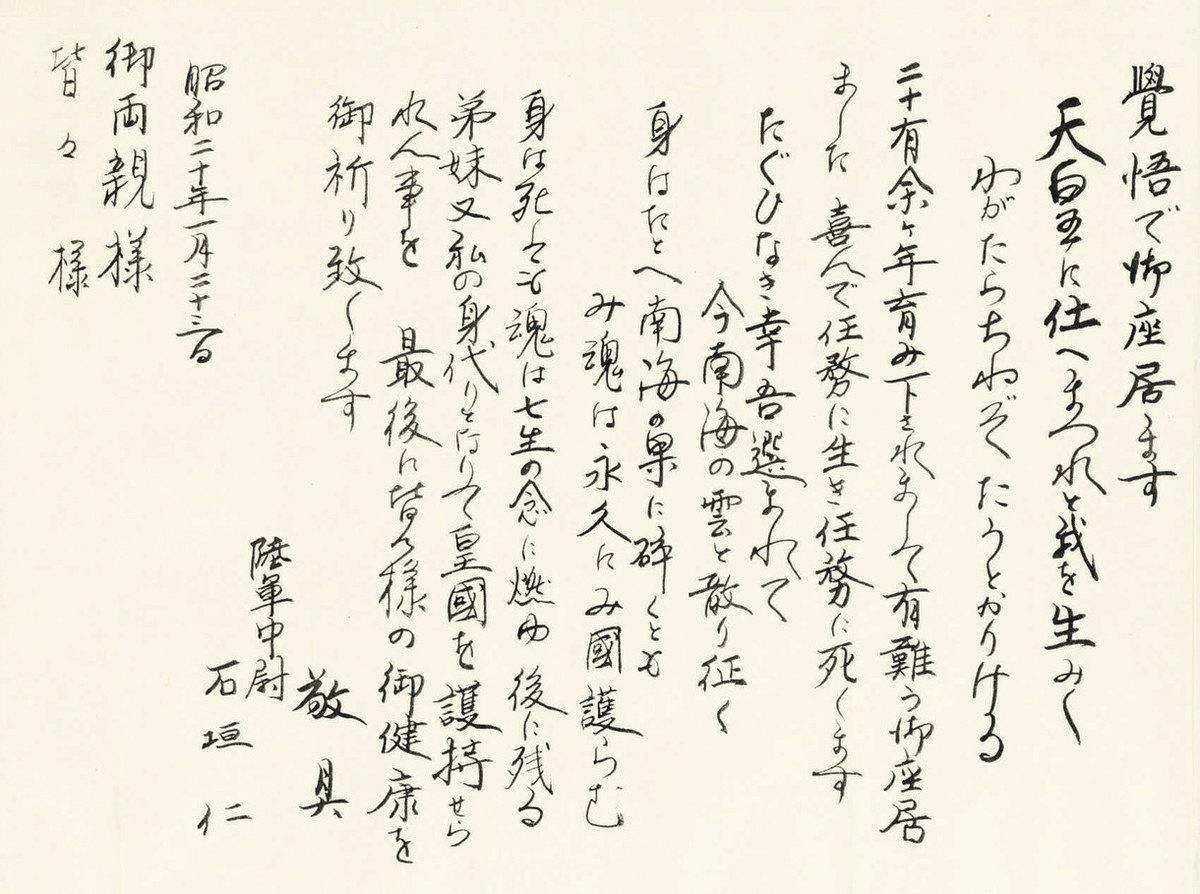 覺悟で御座居ます
天皇に仕へまつれと我を生みし
わがたらちねぞたうとかりける
二十有余ヶ年育み下されまして有難う御座居
ました 喜んで任務に生き任務に死します
たぐひなき幸吾選まれて
今南海の雲と散り征く
身はたとへ南海の果に砕くとも
み魂は永久にみ國護らむ
身は死しても魂は七生の念に燃ゆ 後に残る
弟妹又私の身代りとなりて皇國を護持せら
れん事を 最後に皆々様の御健康を
御祈り致します
敬具
陸軍中尉
石垣仁
昭和二十年一月二十三日
御両親様
皆々様